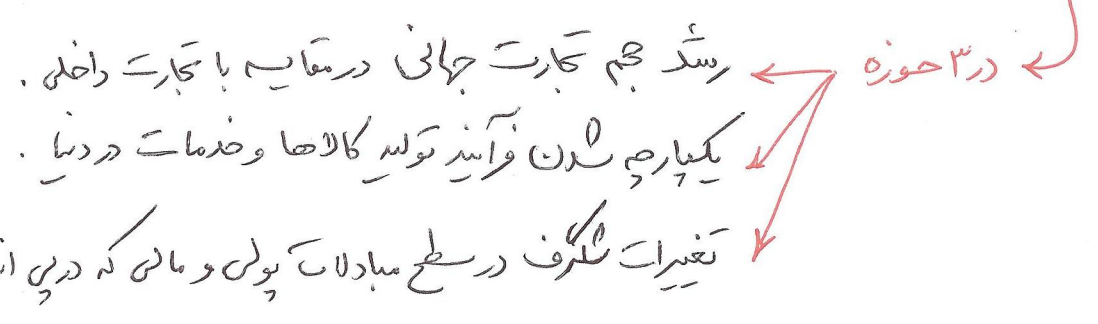 در ۳ حوزه
رشد حجم تجارت جهانی در مقایسه با تجارت داخلی .
یکپارچه شدن فرآیند تولید کالاها و خدمات در دنیا .
تغییرات شگرف در سطح مبادلات پولی و مالی که در پی